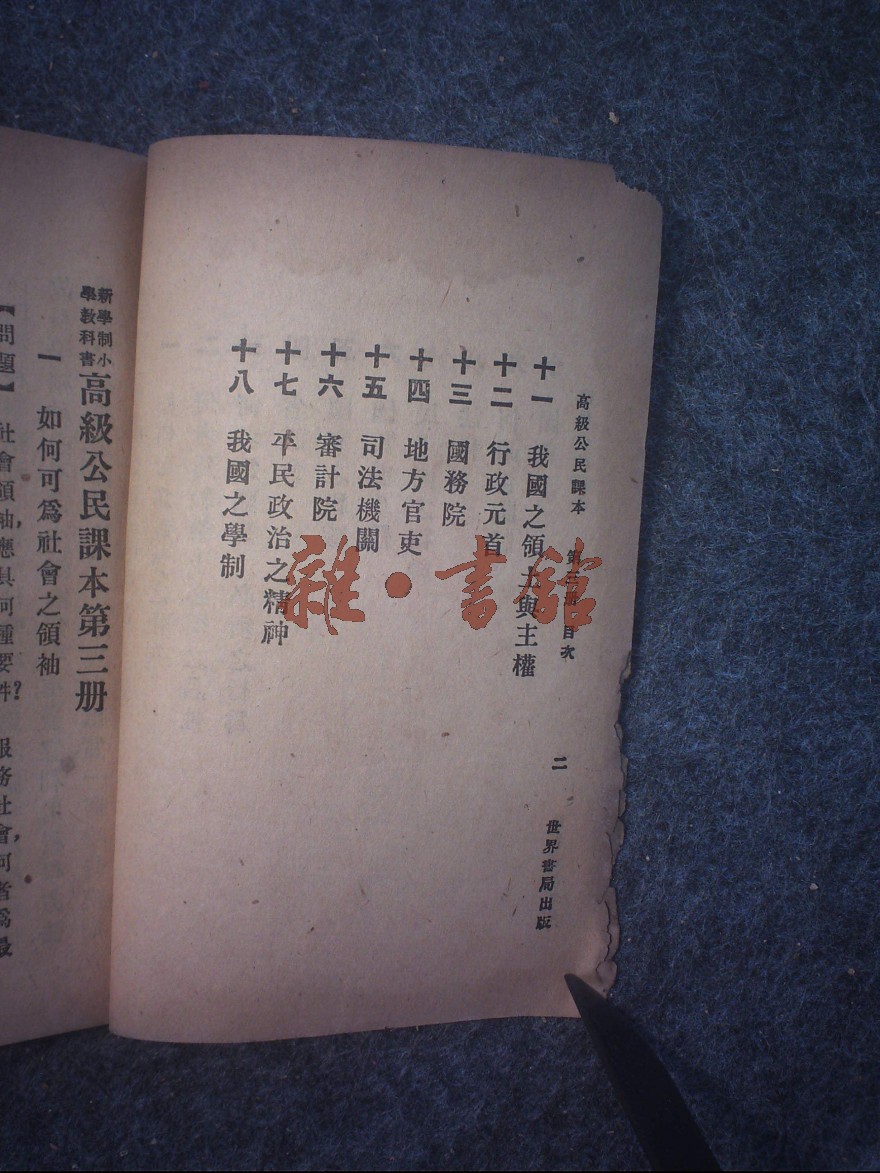 高級公民課本　第三册　目次　二　世界書局出版
十一　我國之領土與主權
十二　行政元首
十三　國務院
十四　地方官吏
十五　司法機關
十六　審計院
十七　平民政治之精神
十八　我國之學制
雜·書館
新學制小學教科書
高級公民課本第三册
一　如何可爲社會之領袖
【問題】　社會領袖,應具何種要件?　服務社會,何者爲最